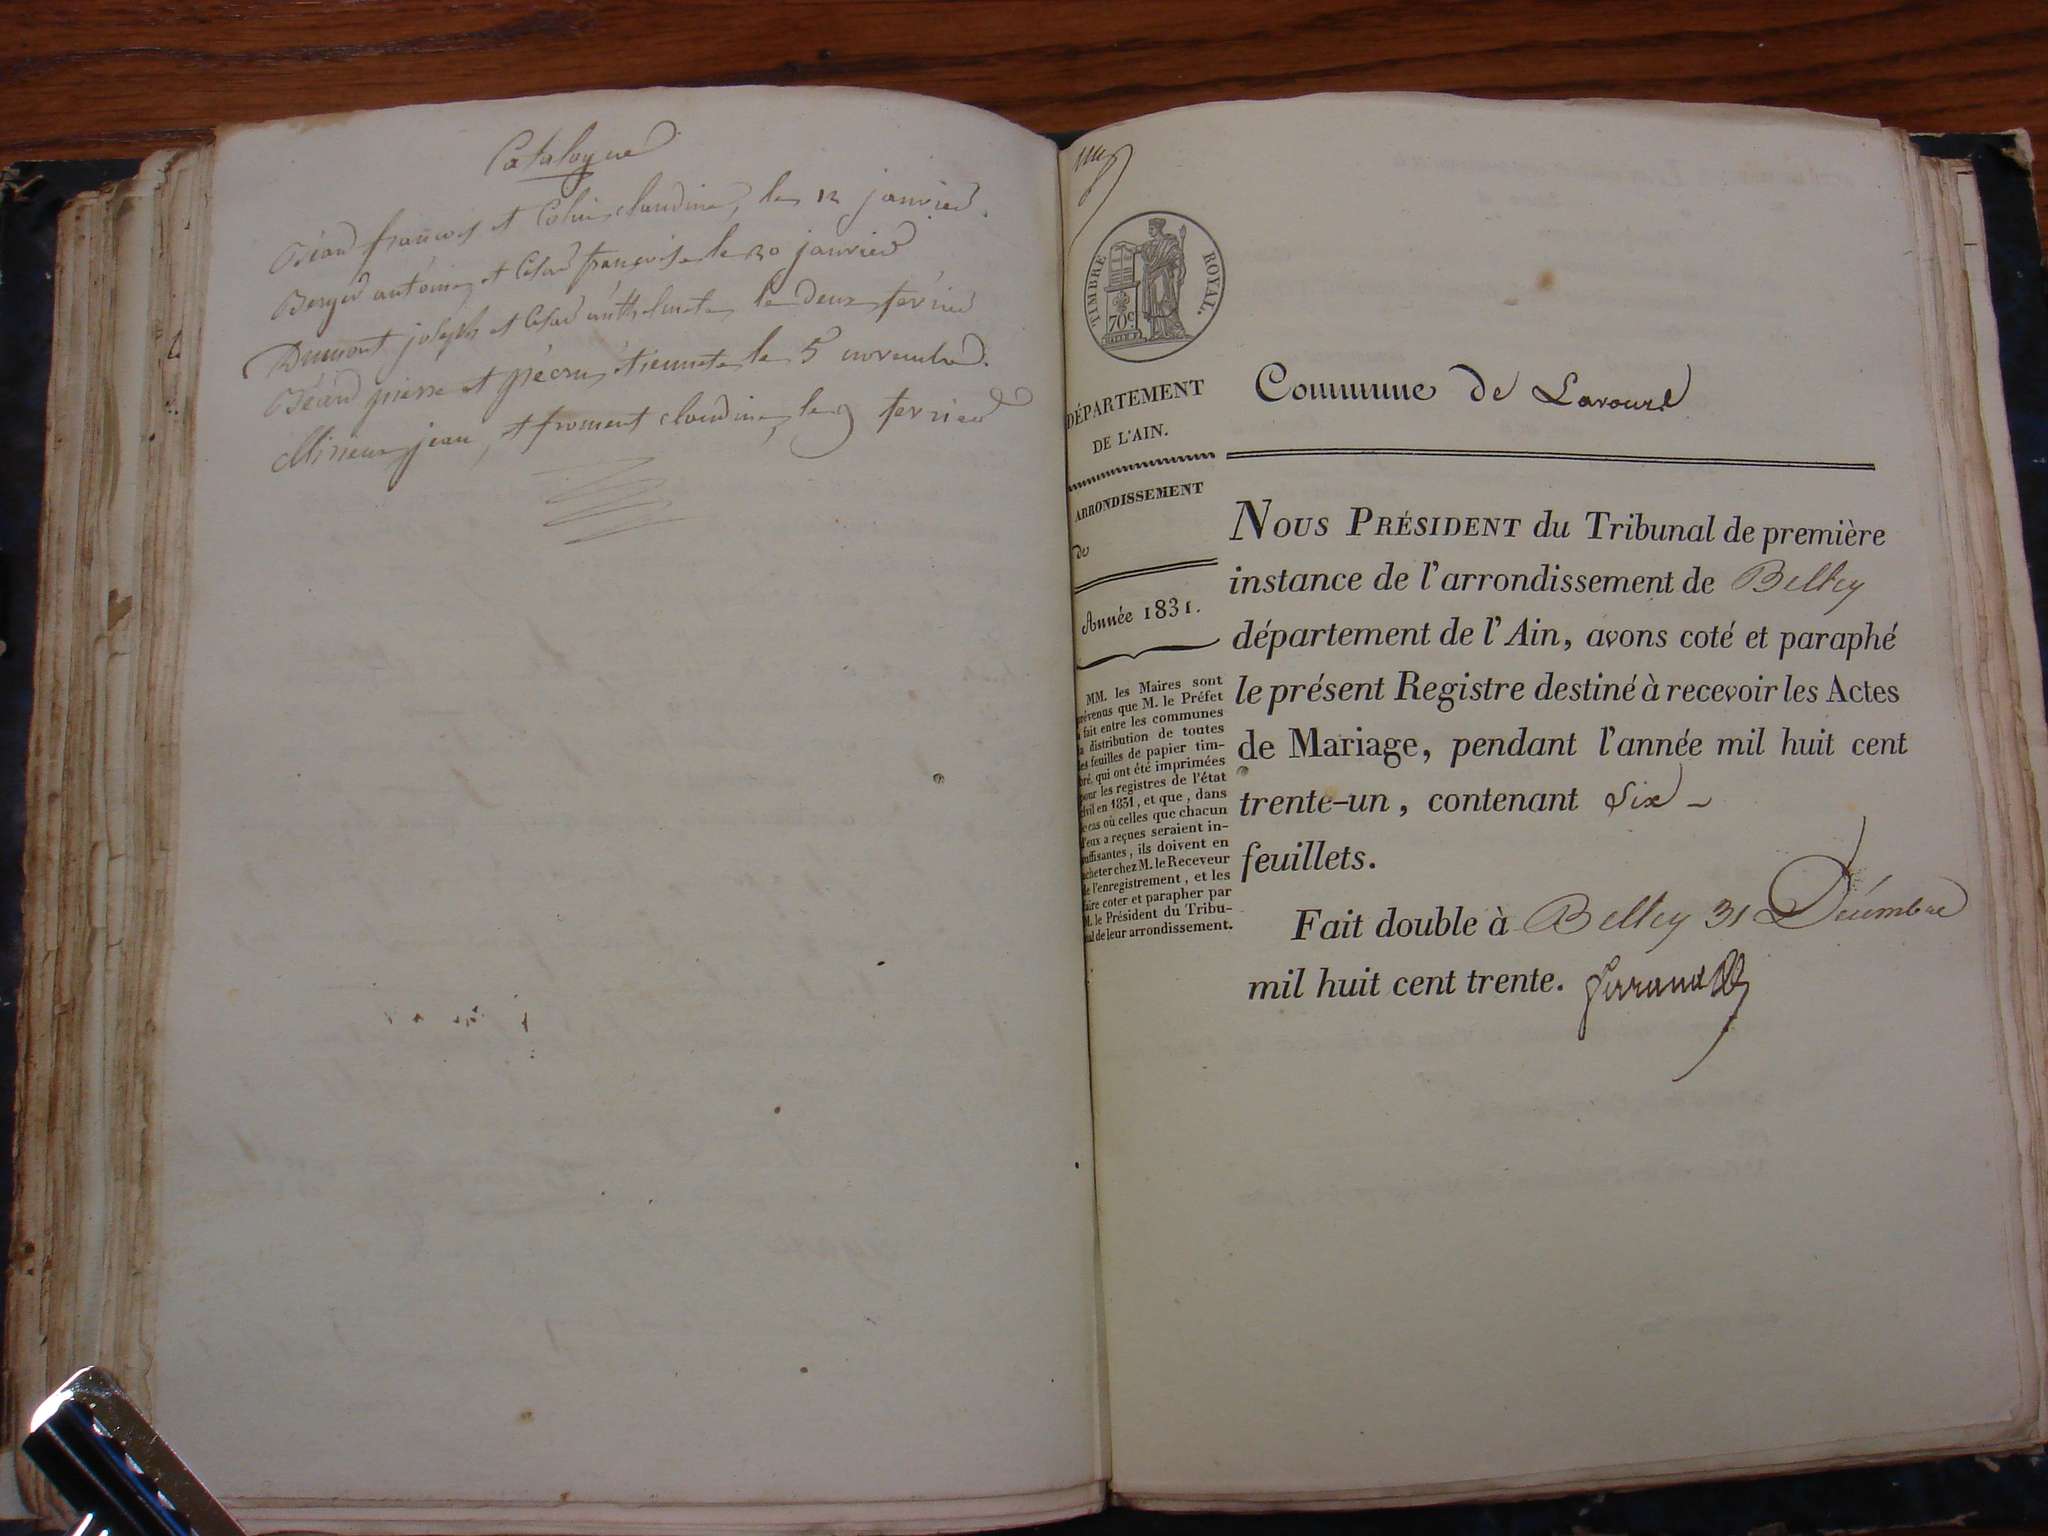 Catalogue
Béard françois et Colin claudine, le 12 janvier.
Berger antoine et César françoise le 30 janvier
Dumont joseph et César anthelmete le deux février
Béard pierre et étiennete le 5 novembre.
jean, et froment claudine, le 9 février
TIMBRE ROYAL.
70c
DÉPARTEMENT
DE L'AIN.
ARRONDISSEMENT
de
Année 1831.
MM. les Maires sont
prévenus que M. le Préfet
a fait entre les communes
la distribution de toutes
les feuilles de papier tim-
bré qui ont été imprimées
pour les registres de l'état
civil en 1831, et que, dans
le cas où celles que chacun
d'eux a reçues seraient in-
suffisantes, ils doivent en
acheter chez M. le Receveur
de l'enregistrement, et les
faire coter et parapher par
M. le Président du Tribu-
nal de leur arrondissement.
Commune de Lavours
NOUS PRÉSIDENT du Tribunal de première
instance de l'arrondissement de Belley
département de l'Ain, avons coté et paraphé
le présent Registre destiné à recevoir les Actes
de Mariage, pendant l'année mil huit cent
trente-un, contenant Six
feuillets.
Fait double à Belley 31 Décembre
mil huit cent trente.